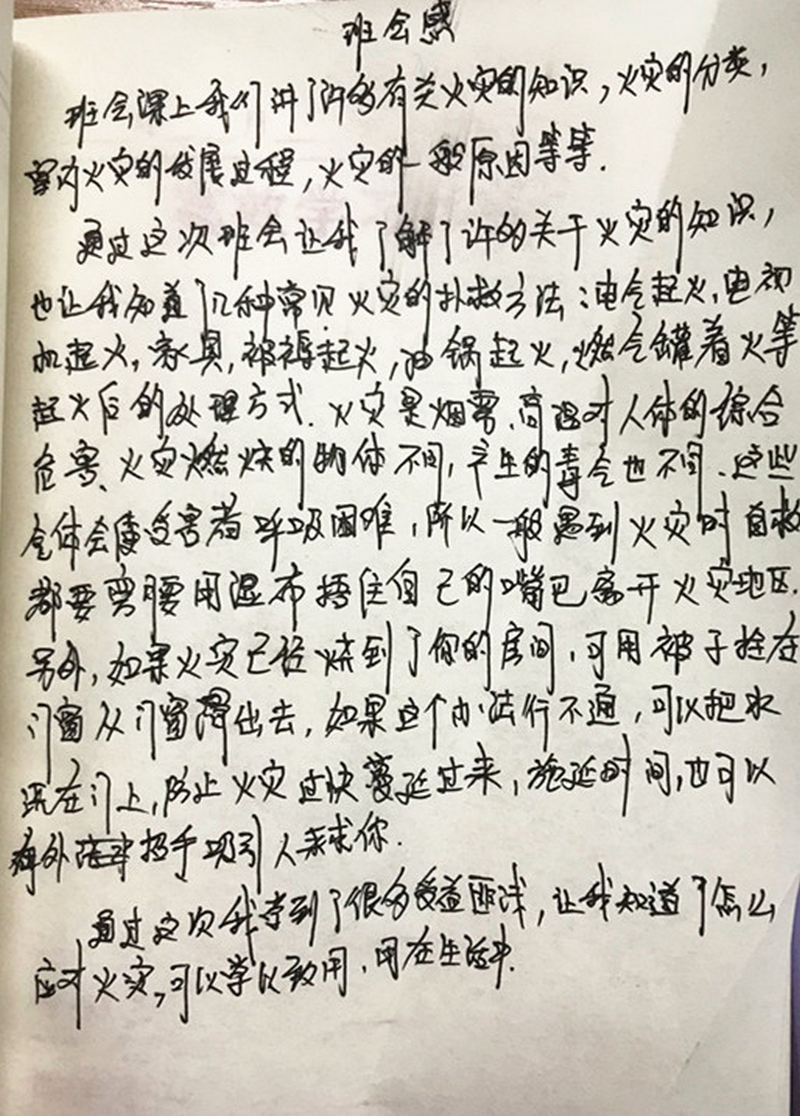 班会感
班会课上我们讲了许多有关火灾的知识，火灾的分类，
室内火灾的发展过程，火灾的一般原因等等.
通过这次班会让我了解了许多关于火灾的知识，
也让我知道了几种常见火灾的扑救方法：电气起火，电视
机起火，家具，被褥起火，油锅起火，燃气罐着火等
起火后的处理方式.火灾是烟雾、高温对人体的综合
危害、火灾燃烧的物体不同，产生的毒气也不同.这些
气体会使受害者呼吸困难，所以一般遇到火灾时自救
都要弯腰用湿布捂住自己的嘴巴离开火灾地区.
另外，如果火灾已经烧到了你的房间，可用被子拴在
门窗从门窗滑出去，如果这个办法行不通，可以把水
浇在门上，防止火灾过快蔓延过来，拖延时间，也可以
外 招手吸引人来救你.
通过这次我学到了很多受益匪浅，让我知道了怎么
应对火灾，可以学以致用，用在生活中.